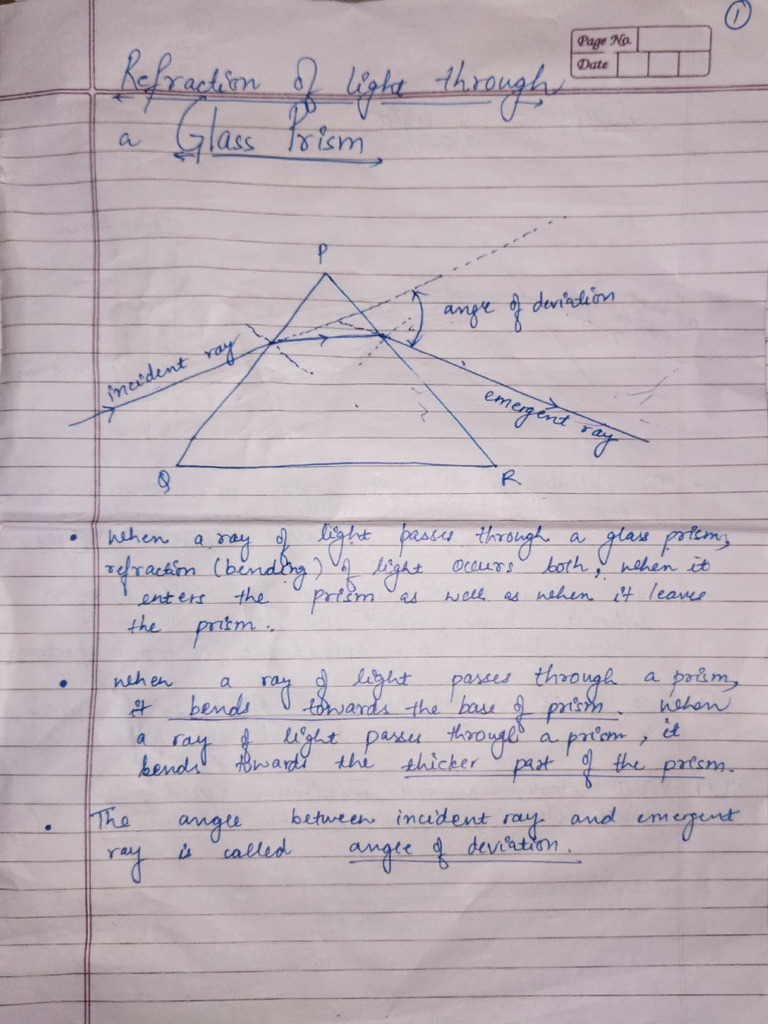 1
Page No.
Date
Refraction of light through
a Glass Prism
P
angle of deviation
incident ray
emergent ray
Q
R
• When a ray of light passes through a glass prism,
refraction (bending) of light occurs both, when it
enters the prism as well as when it leaves
the prism.
• When a ray of light passes through a prism,
it bends towards the base of prism. When
a ray of light passes through a prism, it
bends towards the thicker part of the prism.
• The angle between incident ray and emergent
ray is called angle of deviation.